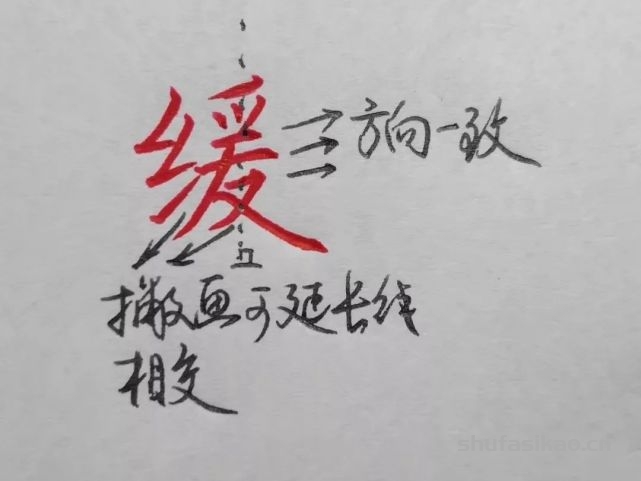 缓
方向一致
撇画可延长线
相交
shufasikao.cn